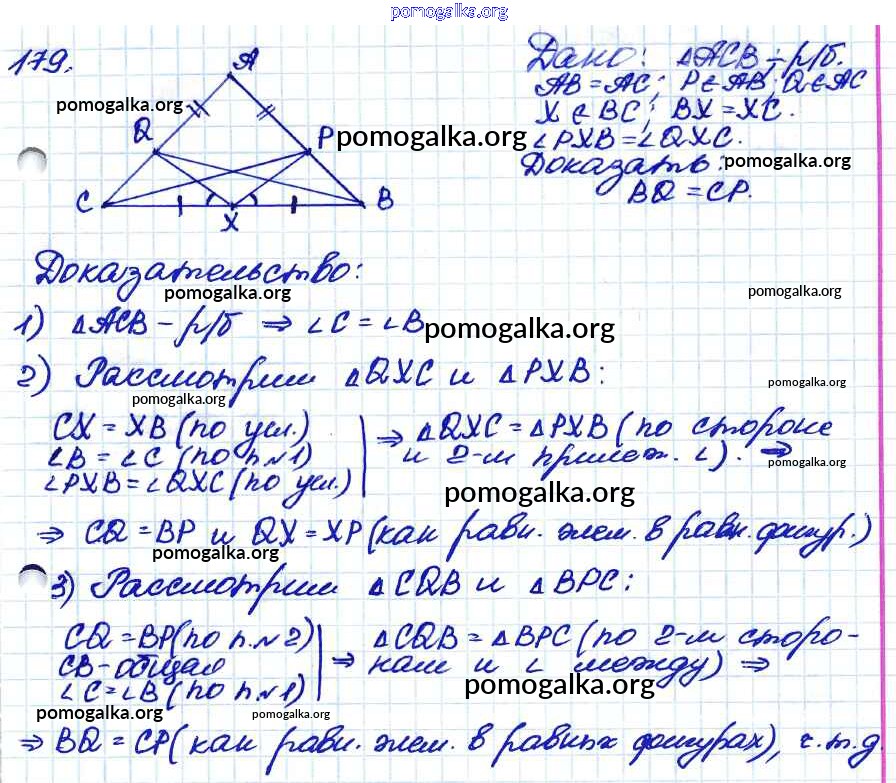 pomogalka.org
179.
A
Q
P
C
X
B
pomogalka.org
pomogalka.org
Дано: △ACB – р/б.
AB = AC; P ∈ AB; Q ∈ AC
X ∈ BC; BX = XC.
∠PXB = ∠QXC.
Доказать:
pomogalka.org
BQ = CP.
Доказательство:
pomogalka.org
pomogalka.org
1) △ACB – р/б ⇒ ∠C = ∠B
pomogalka.org
2) Рассмотрим △QXC и △PXB:
pomogalka.org
pomogalka.org
CX = XB (по усл.)
∠B = ∠C (по п.№1)
∠PXB = ∠QXC (по усл.)
⇒ △QXC = △PXB (по стороне
и 2-м прилеж. ∠). ⇒
pomogalka.org
pomogalka.org
⇒ CQ = BP и QX = XP (как равн. элем. в равн. фигур.)
pomogalka.org
3) Рассмотрим △CQB и △BPC:
CQ = BP (по п.№2)
CB – общая
∠C = ∠B (по п.№1)
⇒ △CQB = △BPC (по 2-м сторо-
нам и ∠ между) ⇒
pomogalka.org
pomogalka.org
pomogalka.org
⇒ BQ = CP (как равн. элем. в равных фигурах), ч.т.д.